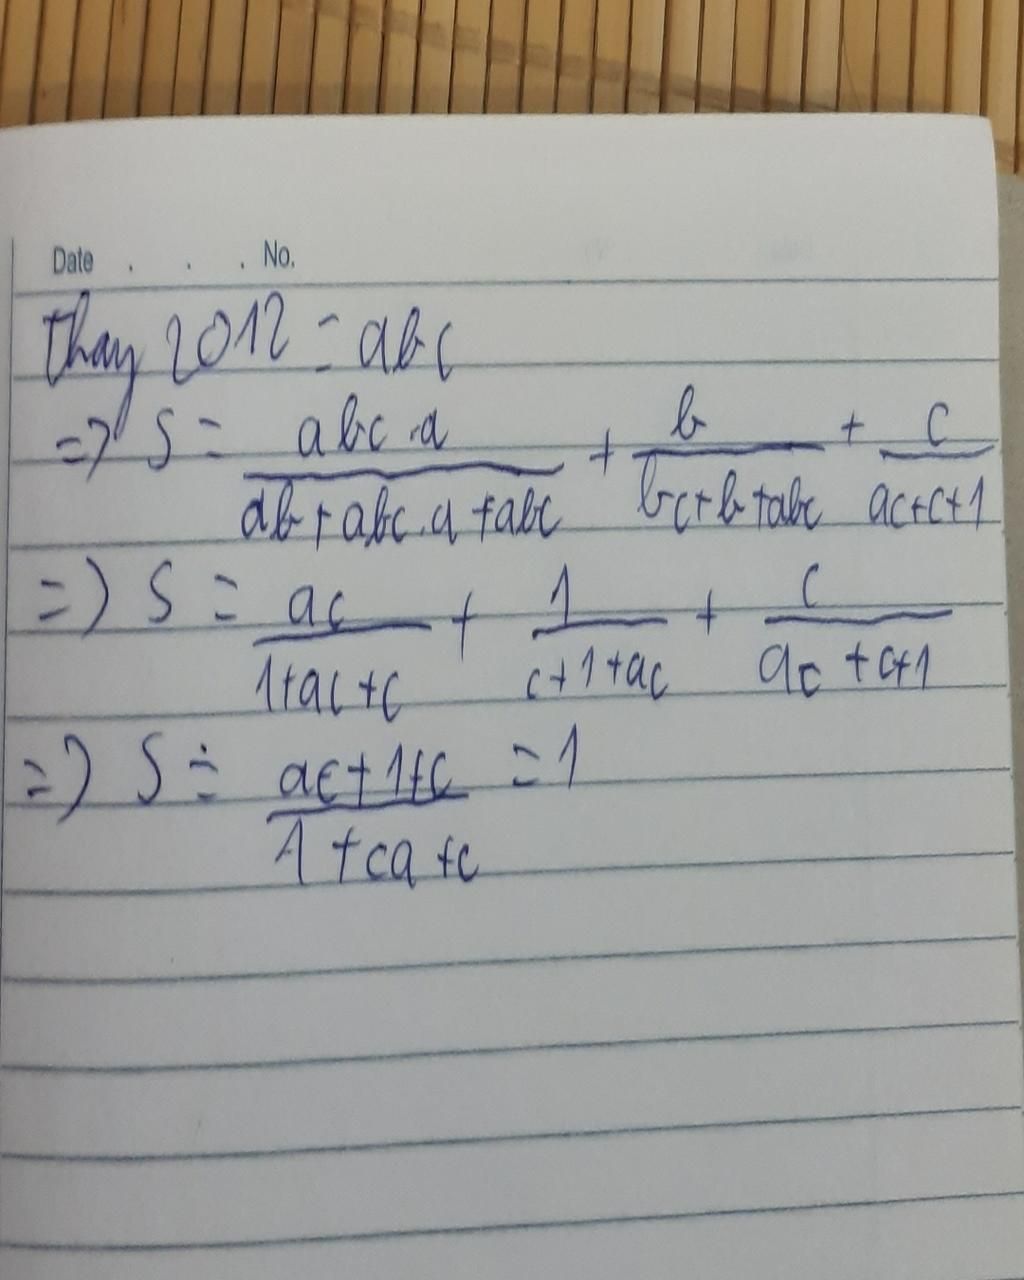 Date . . . No.
Thay 2012 = abc
=> S = abc.a / ab+abc.a+abc + b / bc+b+abc + c / ac+c+1
=> S = ac / 1+ac+c + 1 / c+1+ac + c / ac+c+1
=> S = ac+1+c / 1+ca+c = 1